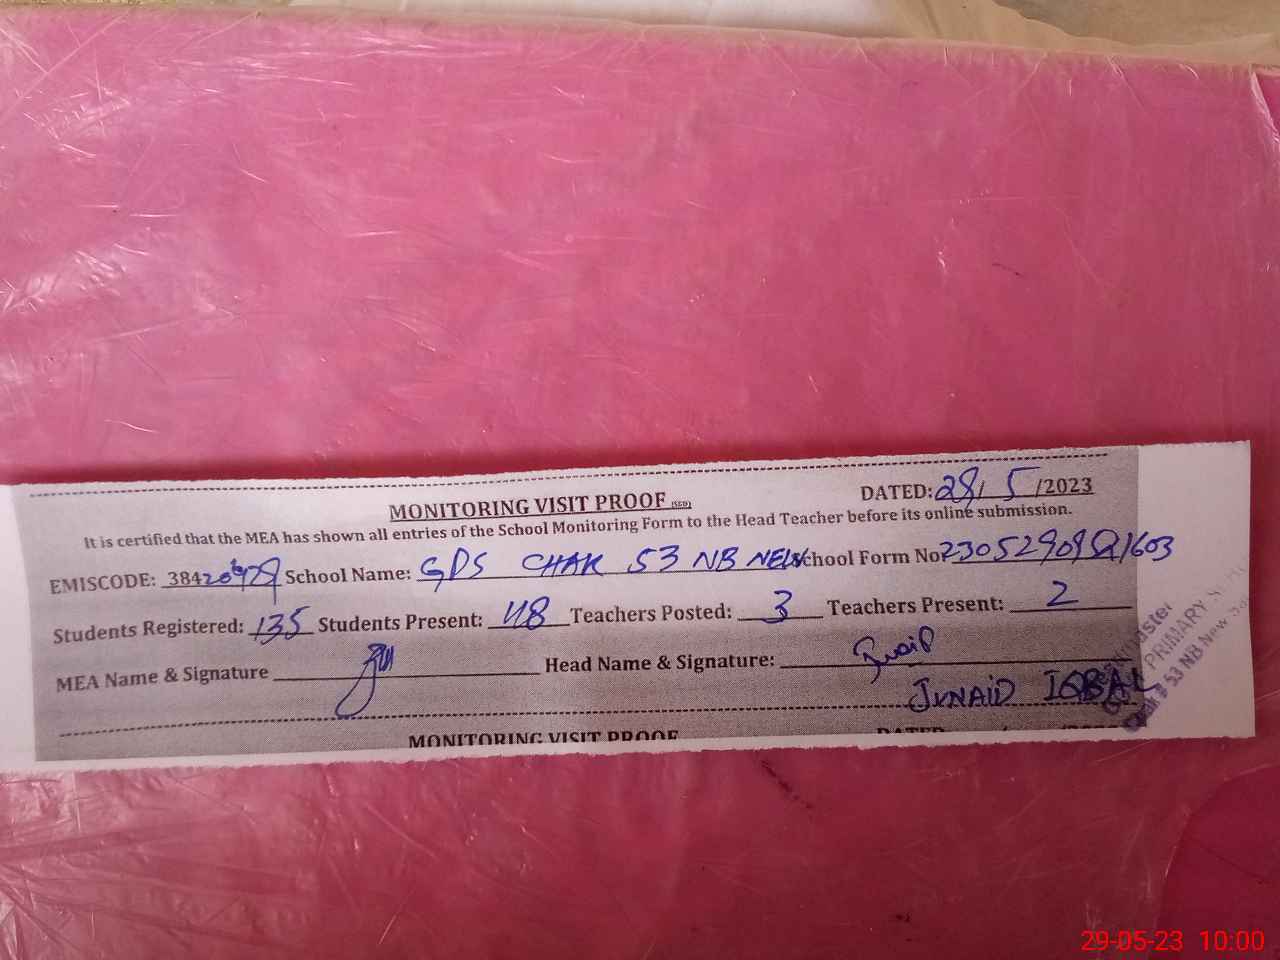 MONITORING VISIT PROOF (SED) DATED: 28/ 5 /2023
It is certified that the MEA has shown all entries of the School Monitoring Form to the Head Teacher before its online submission.
EMISCODE: School Name: GPS CHAK 53 NB NEW School Form No
Students Registered: 135 Students Present: 48 Teachers Posted: 3 Teachers Present: 2
MEA Name & Signature Head Name & Signature: Junaid
JUNAID IQBAL
PRIMARY
Chak # 53 NB New
MONITORING VISIT PROOF DATED
29-05-23 10:00